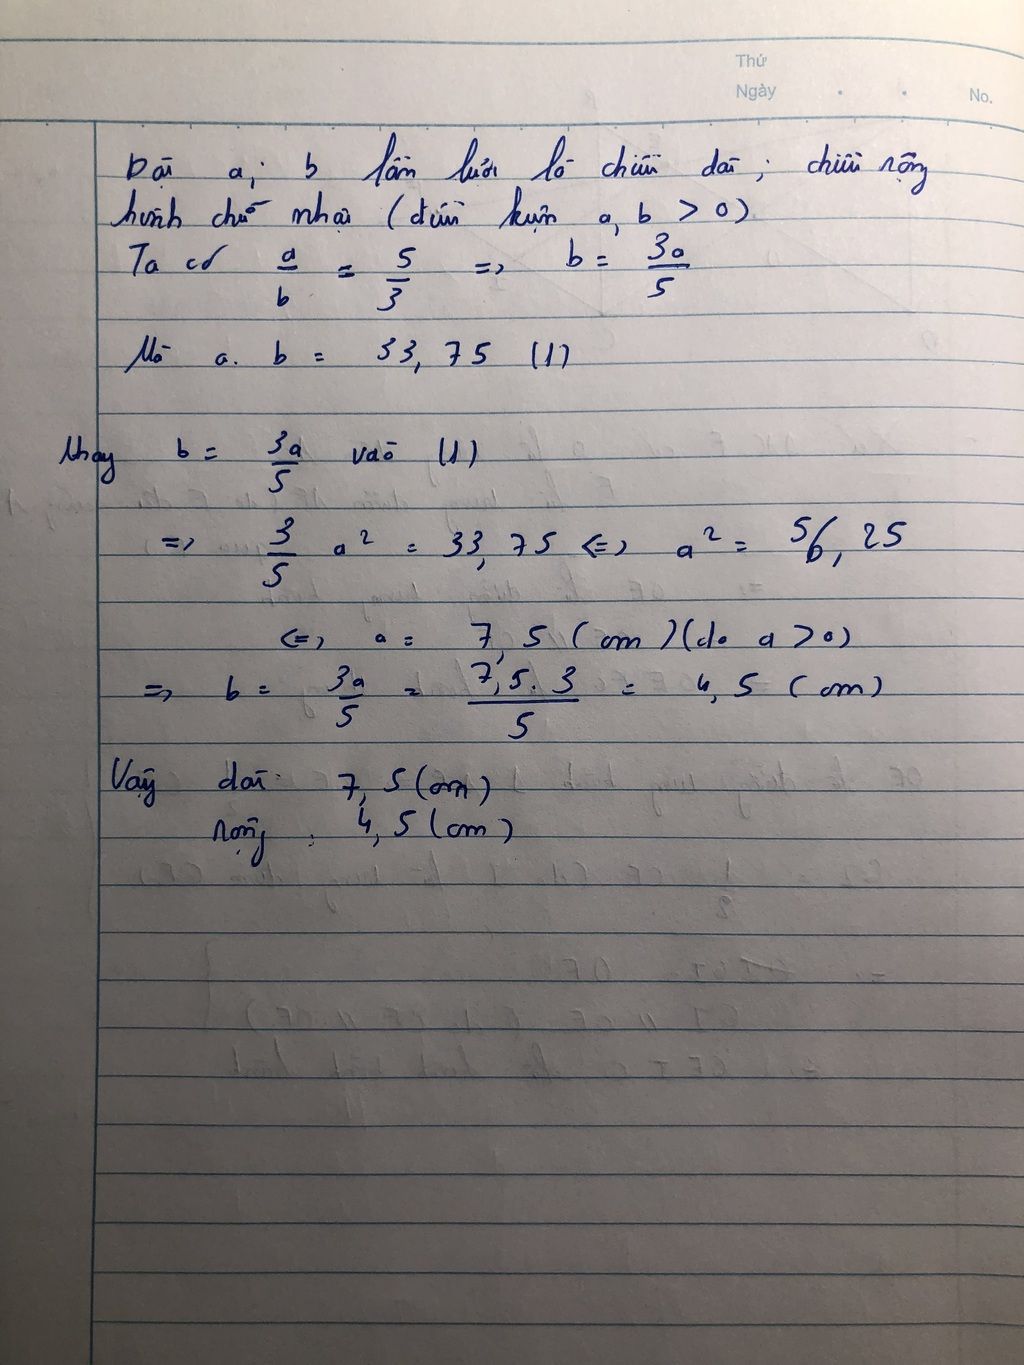 Thứ
Ngày . . No.
Đặt a; b lần lượt là chiều dài; chiều rộng
hình chữ nhật (điều kiện a, b > 0)
Ta có a/b = 5/3 => b = 3a/5
Mà a. b = 33,75 (1)
Thay b = 3a/5 vào (1)
=> 3/5 a² = 33,75 <=> a² = 56,25
<=> a = 7,5 (cm) (do a > 0)
=> b = 3a/5 = 7,5.3/5 = 4,5 (cm)
Vậy dài: 7,5 (cm)
rộng: 4,5 (cm)